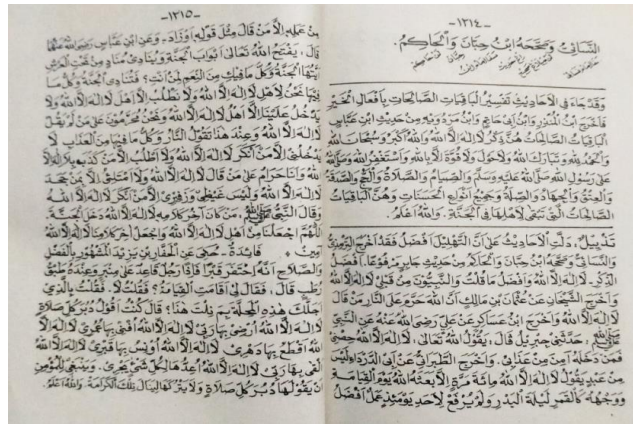 -١٢١٤-
النسائى وصححه ابن حبان والحاكم.
وقد جاء فى الاحاديث تفسير الباقيات الصالحات بأفعال الخير
فأخرج ابن المنذر وابن ابى حاتم وابن مردويه من حديث ابن عباس
الباقيات الصالحات هن ذكر لا اله الا الله والله أكبر وسبحان الله
والحمد لله وتبارك الله ولا حول ولا قوة الا بالله واستغفر الله وصلى الله
على رسول الله صلى الله عليه وسلم والصيام والصلاة والحج والصدقة
والعتق والجهاد والصلة وجميع انواع الحسنات وهن الباقيات
الصالحات التى تبقى لاهلها فى الجنة. والله اعلم.
تذييل، دلت الاحاديث على ان التهليل افضل فقد اخرج الترمذى
والنسائى وصححه ابن حبان والحاكم من حديث جابر مرفوعا. أفضل
الذكر. لا اله الا الله وافضل ما قلت والنبيون من قبلى لا اله الا الله
واخرج الشيخان عن عتبان بن مالك ان الله حرم على النار من قال
لا اله الا الله واخرج ابن عساكر عن على رضى الله عنه عن النبى
ﷺ حدثنى جبريل قال، يقول الله تعالى، لا اله الا الله حصنى
فمن دخله امن من عذابى. واخرج الطبرانى عن ابى الدرداء ليس
من عبد يقول لا اله الا الله مائة مرة الا بعثه الله يوم القيامة
ووجهه كالقمر ليلة البدر ولم يرفع لاحد يومئذ عمل افضل
-١٢١٥-
من عمله الا من قال مثل قوله او زاد، وعن ابن عباس رضى الله عنهما
قال، يفتح الله تعالى ابواب الجنة وينادى مناد من تحت العرش
ايتها الجنة وكل ما فيك من النعم لمن انت؟ فتنادى الجنة وكل ما
فيها نحن لاهل لا اله الا الله ولا نطلب الا اهل لا اله الا الله ولا
يدخل علينا الا اهل لا اله الا الله ونحن محرمون على من لم يقل
لا اله الا الله وعند هذا تقول النار وكل ما فيها من العذاب لا
يدخلنى الا من انكر لا اله الا الله ولا اطلب الا من كذب بلا اله الا
الله وانا حرام على من قال لا اله الا الله ولا امتلئ الا بمن جحد
لا اله الا الله وليس غيظى وزفيرى الا من انكر لا اله الا الله
وقال النبى ﷺ، من كان آخر كلامه لا اله الا الله دخل الجنة.
اللهم اجعلنا من اهل لا اله الا الله واجعل آخر كلامنا لا اله الا الله
آمين. فائدة- حكى عن بن يزيد المشهور بالفضل
والصلاح انه احتفر قبرا فاذا رجل قاعد على منبر وعنده طبق
رطب قال، فقال لى اقامت القيامة؟ فقلت لا. فقلت بالذى
اجلك هذه المحلة بم نلت هذا؟ قال كنت اقول دبر كل صلاة
لا اله الا الله ارضى بها ربى لا اله الا الله افنى بها عمرى لا اله الا
الله اقطع بها دهرى. لا اله الا الله اونس بها قبرى لا اله الا الله
ألقى بها ربى لا اله الا الله اعدها لكل شئ يجرى. وينبغى للمؤمن
ان يقولها دبر كل صلاة ولا يتركها لينال تلك الكرامة. والله اعلم.